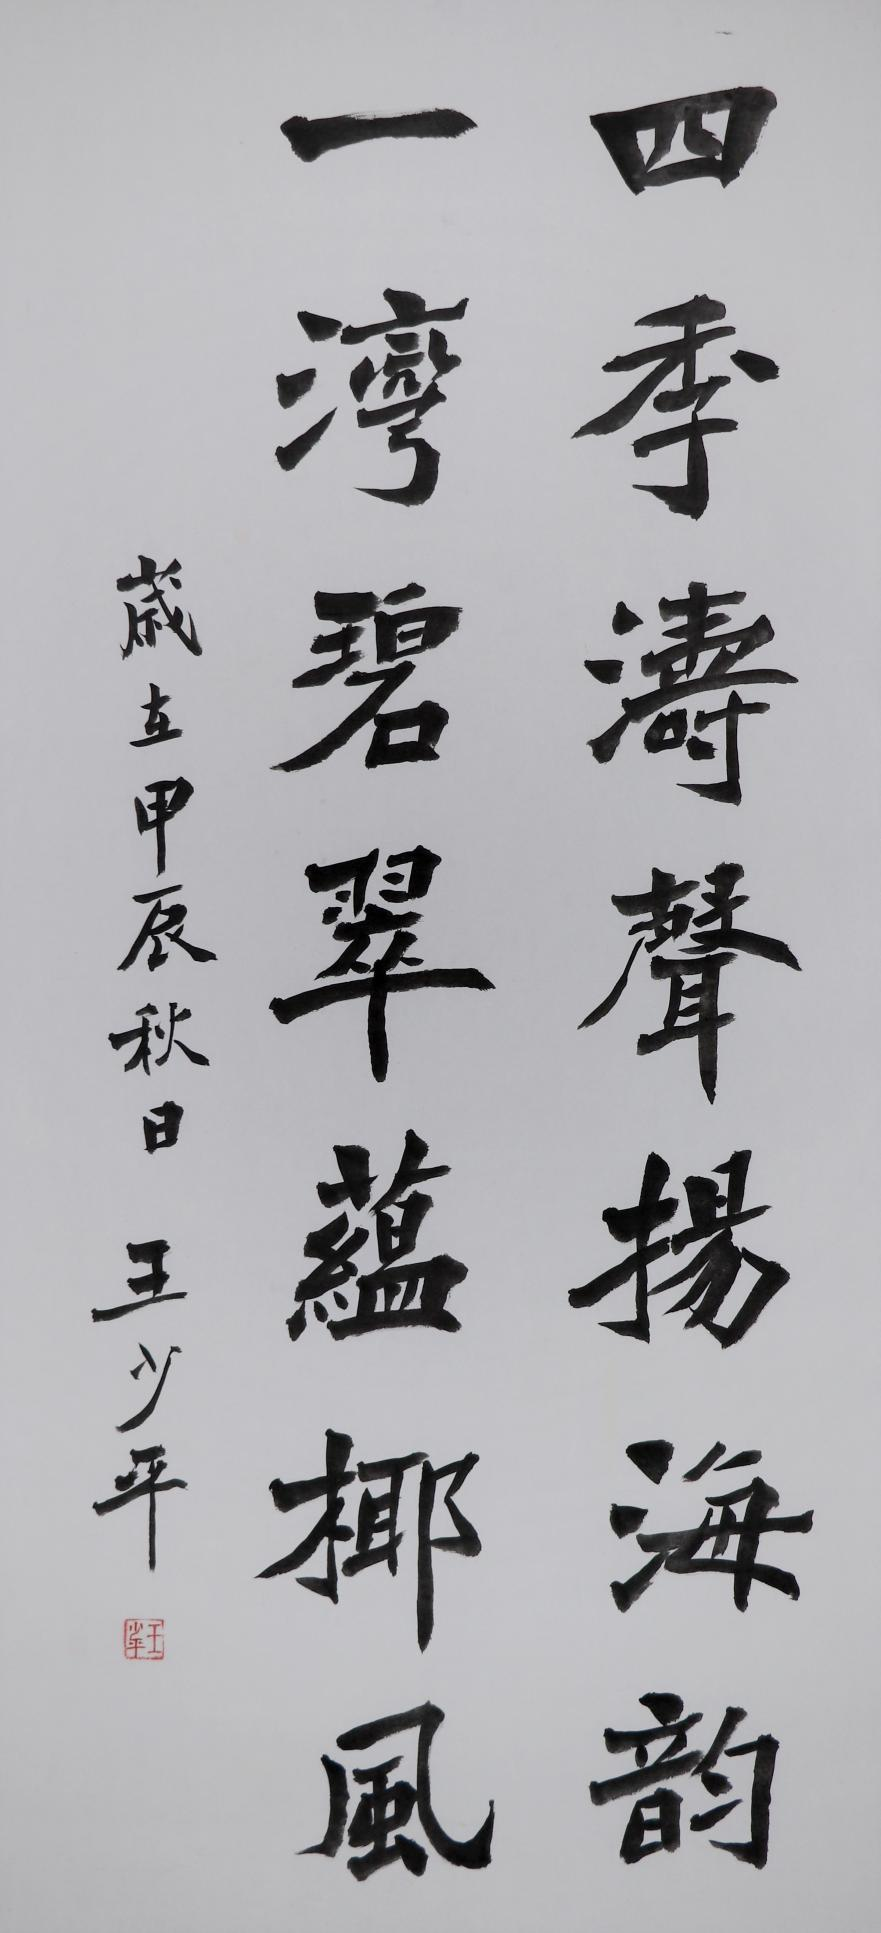 四季濤聲揚海韵
一灣碧翠蘊椰風
歲在甲辰秋日 王少平
王少平